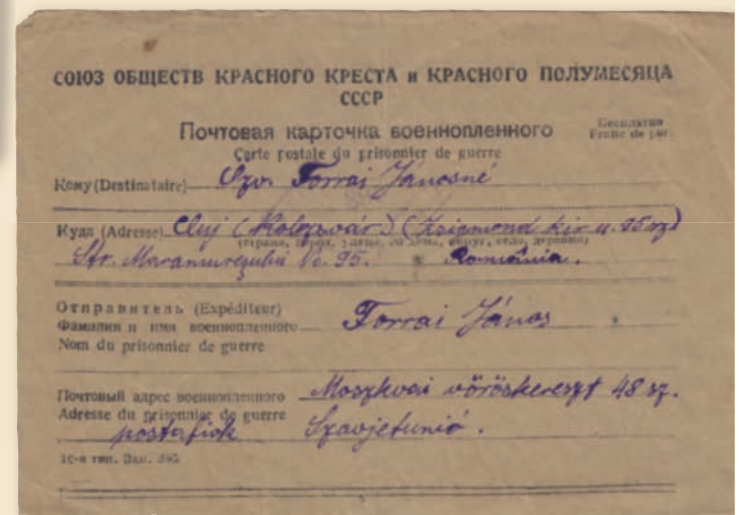 СОЮЗ ОБЩЕСТВ КРАСНОГО КРЕСТА и КРАСНОГО ПОЛУМЕСЯЦА
СССР
Почтовая карточка военнопленного
Бесплатно
Franc de port
Carte postale du prisonnier de guerre
Кому (Destinataire) Özv. Forrai Jánosné
Куда (Adresse) Cluj (Kolozsvár) (Zsigmond kir u. 95 sz)
(страна, город, улица, № дома, округ, село, деревня)
Str. Maramureşului No. 95. România.
Отправитель (Expéditeur)
Фамилия и имя военнопленного Forrai János
Nom du prisonnier de guerre
Почтовый адрес военнопленного Moszkvai vöröskereszt 48 sz.
Adresse du prisonnier de guerre
postafiok Szovjetunió.
16-я тип. Зак.